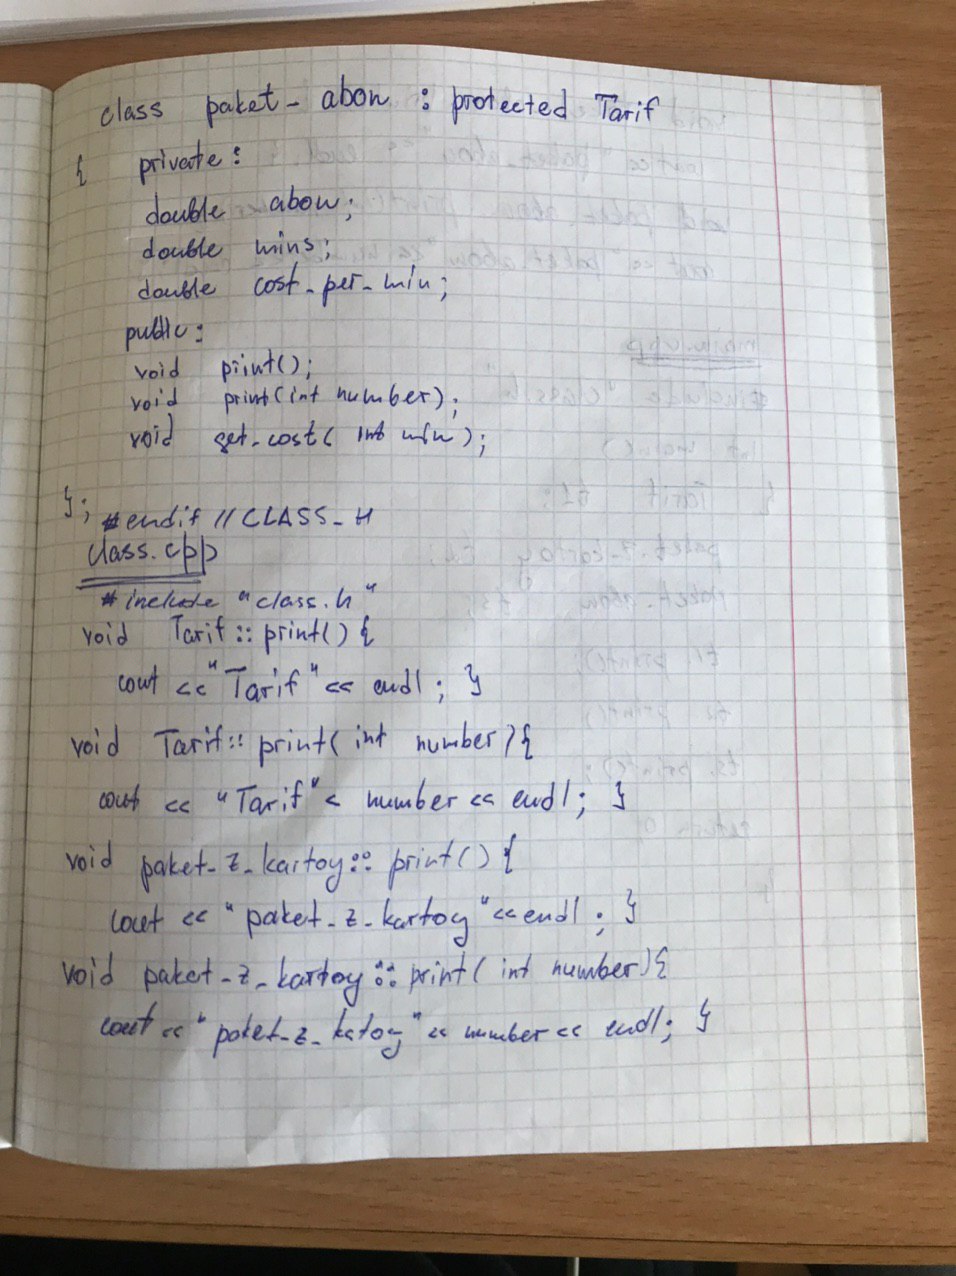 class paket_abon : protected Tarif
{ private:
double abon;
double mins;
double cost_per_min;
public:
void print();
void print(int number);
void get_cost( int min );
}; #endif //CLASS_H
class.cpp
#include "class.h"
void Tarif::print(){
cout << "Tarif" << endl; }
void Tarif:: print( int number){
cout << "Tarif"< number << endl; }
void paket_z_kartoy:: print() {
cout << "paket_z_kartoy"<<endl; }
void paket_z_kartoy:: print( int number){
cout << "paket_z_katoy" << number << endl; }